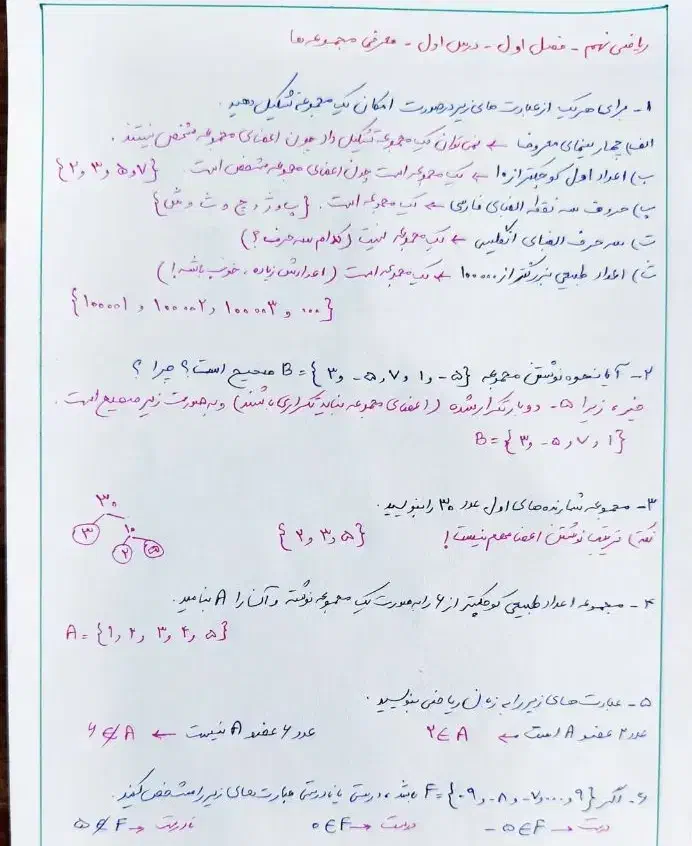 ریاضی نهم - فصل اول - درس اول - معرفی مجموعه ها
۱- برای هر یک از عبارت های زیر در صورت امکان یک مجموعه تشکیل دهید.
الف) چهار سینمای معروف ← نمی توان یک مجموعه تشکیل داد چون اعضای مجموعه مشخص نیستند.
ب) اعداد اول کوچکتر از ۱۰ ← یک مجموعه است چون اعضای مجموعه مشخص است. {۲ و ۳ و ۵ و ۷}
پ) حروف سه نقطه الفبای فارسی ← یک مجموعه است. {پ و ژ و چ و ث و ش}
ت) سه حرف الفبای انگلیسی ← یک مجموعه نیست (کدام سه حرف؟)
ث) اعداد طبیعی بزرگتر از ۱۰۰۰۰۰ ← یک مجموعه است (اعدادش زیاده، خوب باشه!)
{۱۰۰۰۰۱ و ۱۰۰۰۰۲ و ۱۰۰۰۰۳ و ...}
۲- آیا نحوه نوشتن مجموعه B = {۳ و ۵- و ۷ و ۱ و ۵-} صحیح است؟ چرا؟
خیر، زیرا ۵- دوبار تکرار شده (اعضای مجموعه نباید تکراری باشند) و به صورت زیر صحیح است.
B = {۳ و ۵- و ۷ و ۱}
۳- مجموعه شمارنده های اول عدد ۳۰ را بنویسید.
نکته) ترتیب نوشتن اعضا مهم نیست! {۲ و ۳ و ۵}
۳۰
۳ ۱۰
۲ ۵
۴- مجموعه اعداد طبیعی کوچکتر از ۶ را به صورت یک مجموعه نوشته و آنرا A بنامید.
A = {۱ و ۲ و ۳ و ۴ و ۵}
۵- عبارت های زیر را به زبان ریاضی بنویسید.
عدد ۲ عضو A است ← ۲ ∈ A عدد ۶ عضو A نیست ← ۶ ∉ A
۶- اگر F = {-۹ و -۸ و -۷ و ... و ۹} باشد، درستی یا نادرستی عبارت های زیر را مشخص کنید.
-۵ ∈ F → درست ۰ ∈ F → درست ۵ ∉ F → نادرست